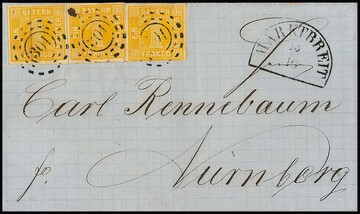 BAYERN BAYERN BAYERN
FRANCO FRANCO
MARKTBREIT
Carl Rennebaum
fr.
Nürnberg